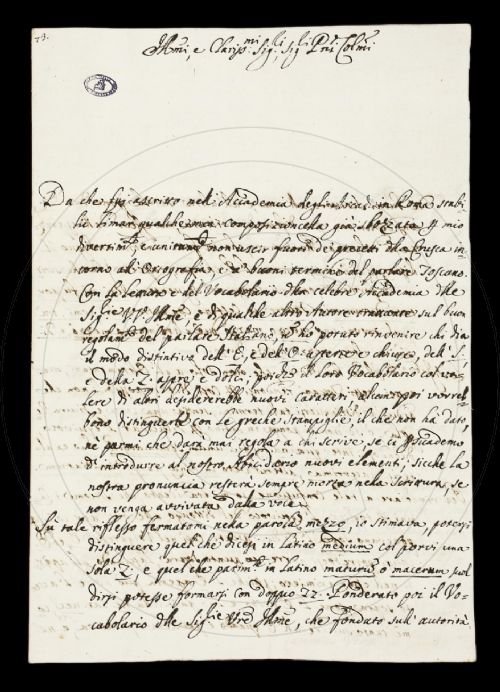 73.
Illmi, e Clarissmi Sigli, Sigli Pni Colmi
Da che fui ascritto nell'Accademia degl'Arcadi in Roma stabi-
lii limar qualche mia composizioncella già sbozzata p mio
divertimto, e unicamte non uscir fuori dei precetti della Crusca in-
torno all'Ortografia, e a buoni termini del parlare Toscano.
Con la lettura e del Vocabolario della celebre Accademia delle
Sigrie Vre Illme e di qualche altro Autore trattante sul buon
regolamto del parlare Italiano, non ho potuto rinvenire chi dia
il modo distintivo dell'E, e dell'O aperte, e chiuse, dell'S,
e della Z aspre, e dolci, poiche il loro Vocabolario col vo-
lere di altri desidererebbe nuovi caratteri, alcuni poi vorreb-
bono distinguerle con le greche stampiglie, il che non ha dato,
ne parmi che darà mai regola a chi scrive, se ci possiademo
d'introdurre al nostro Abicidario nuovi elementi; sicche la
nostra pronuncia resterà sempre morta nella scrittura, se
non venga avvivata dalla voce.
Su tale riflesso fermatomi nella parola mezzo, io stimava, potersi
distinguere quel che dicesi in Latino medium col porvi una
sola Z; e quel che parimte in Latino maturum o macerum suol
dirsi potesse formarsi con doppio zz. Ponderato poi il Vo-
cabolario delle Sigrie Vre Illme, che fondato sull'autorità